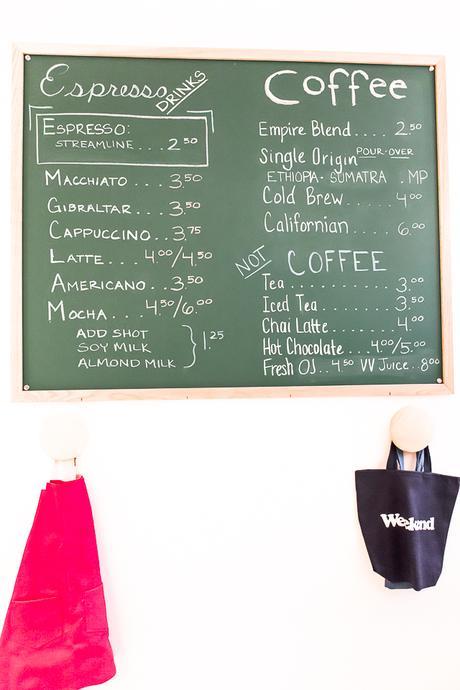 Espresso DRINKS
ESPRESSO:
STREAMLINE .... 2.50
MACCHIATO ... 3.50
GIBRALTAR ... 3.50
CAPPUCCINO .. 3.75
LATTE .... 4.00/4.50
AMERICANO ... 3.50
MOCHA .... 4.50/6.00
ADD SHOT
SOY MILK
ALMOND MILK
1.25
Coffee
Empire Blend .... 2.50
Single Origin POUR-OVER
ETHIOPIA · SUMATRA . MP
Cold Brew ..... 4.00
Californian ..... 6.00
NOT COFFEE
Tea ........... 3.00
Iced Tea ........ 3.50
Chai Latte ....... 4.00
Hot Chocolate .... 4.00/5.00
Fresh OJ .. 4.50 VV Juice .. 8.00
Weekend